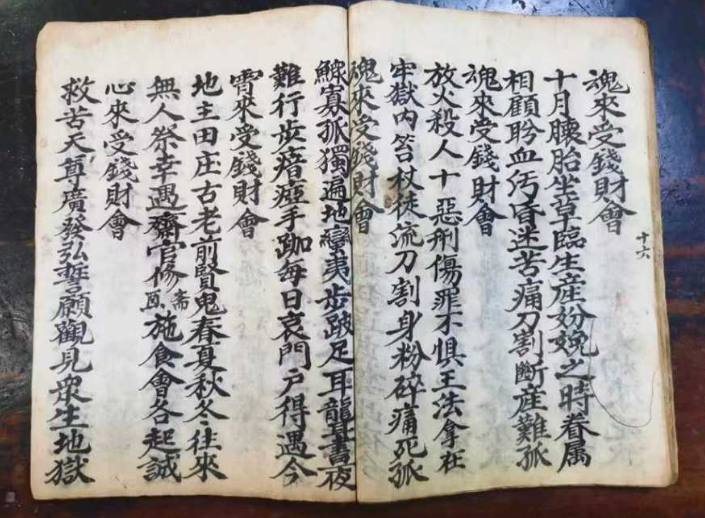 魂來受錢財會
十月胰胎坐草臨生産妢娩之時眷属
相顧昐血污昏迷苦痛刀割斷産難孤
魂來受錢財會
放火殺人十惡刑傷罪不惧王法拿在
牢獄内笞杖徒流刀割身粉碎痛死孤
魂來受錢財會
鰥寡孤獨遍地蠻夷步跛足耳龍其晝夜
難行步瘖瘂手跏每日哀門戸得遇今
霄來受錢財會
地主田庄古老前賢鬼春夏秋冬往來
無人祭幸遇齋官修斋施食會各起誠
心來受錢財會
救苦天尊廣發弘誓願觀見衆生地獄
十六